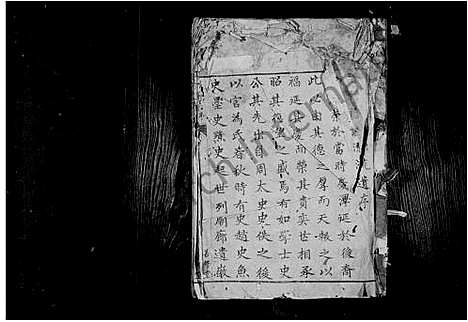 遺序
於當時慶澤延於後裔
此必由其德之厚而天報之以
福延其後而榮其貴奕世相承
昭其德之盛焉有如學士史
公其先出自周太史史佚之後
以官為氏春秋時有史趙史魚
史墨史黯歷世列廟廊遺徽